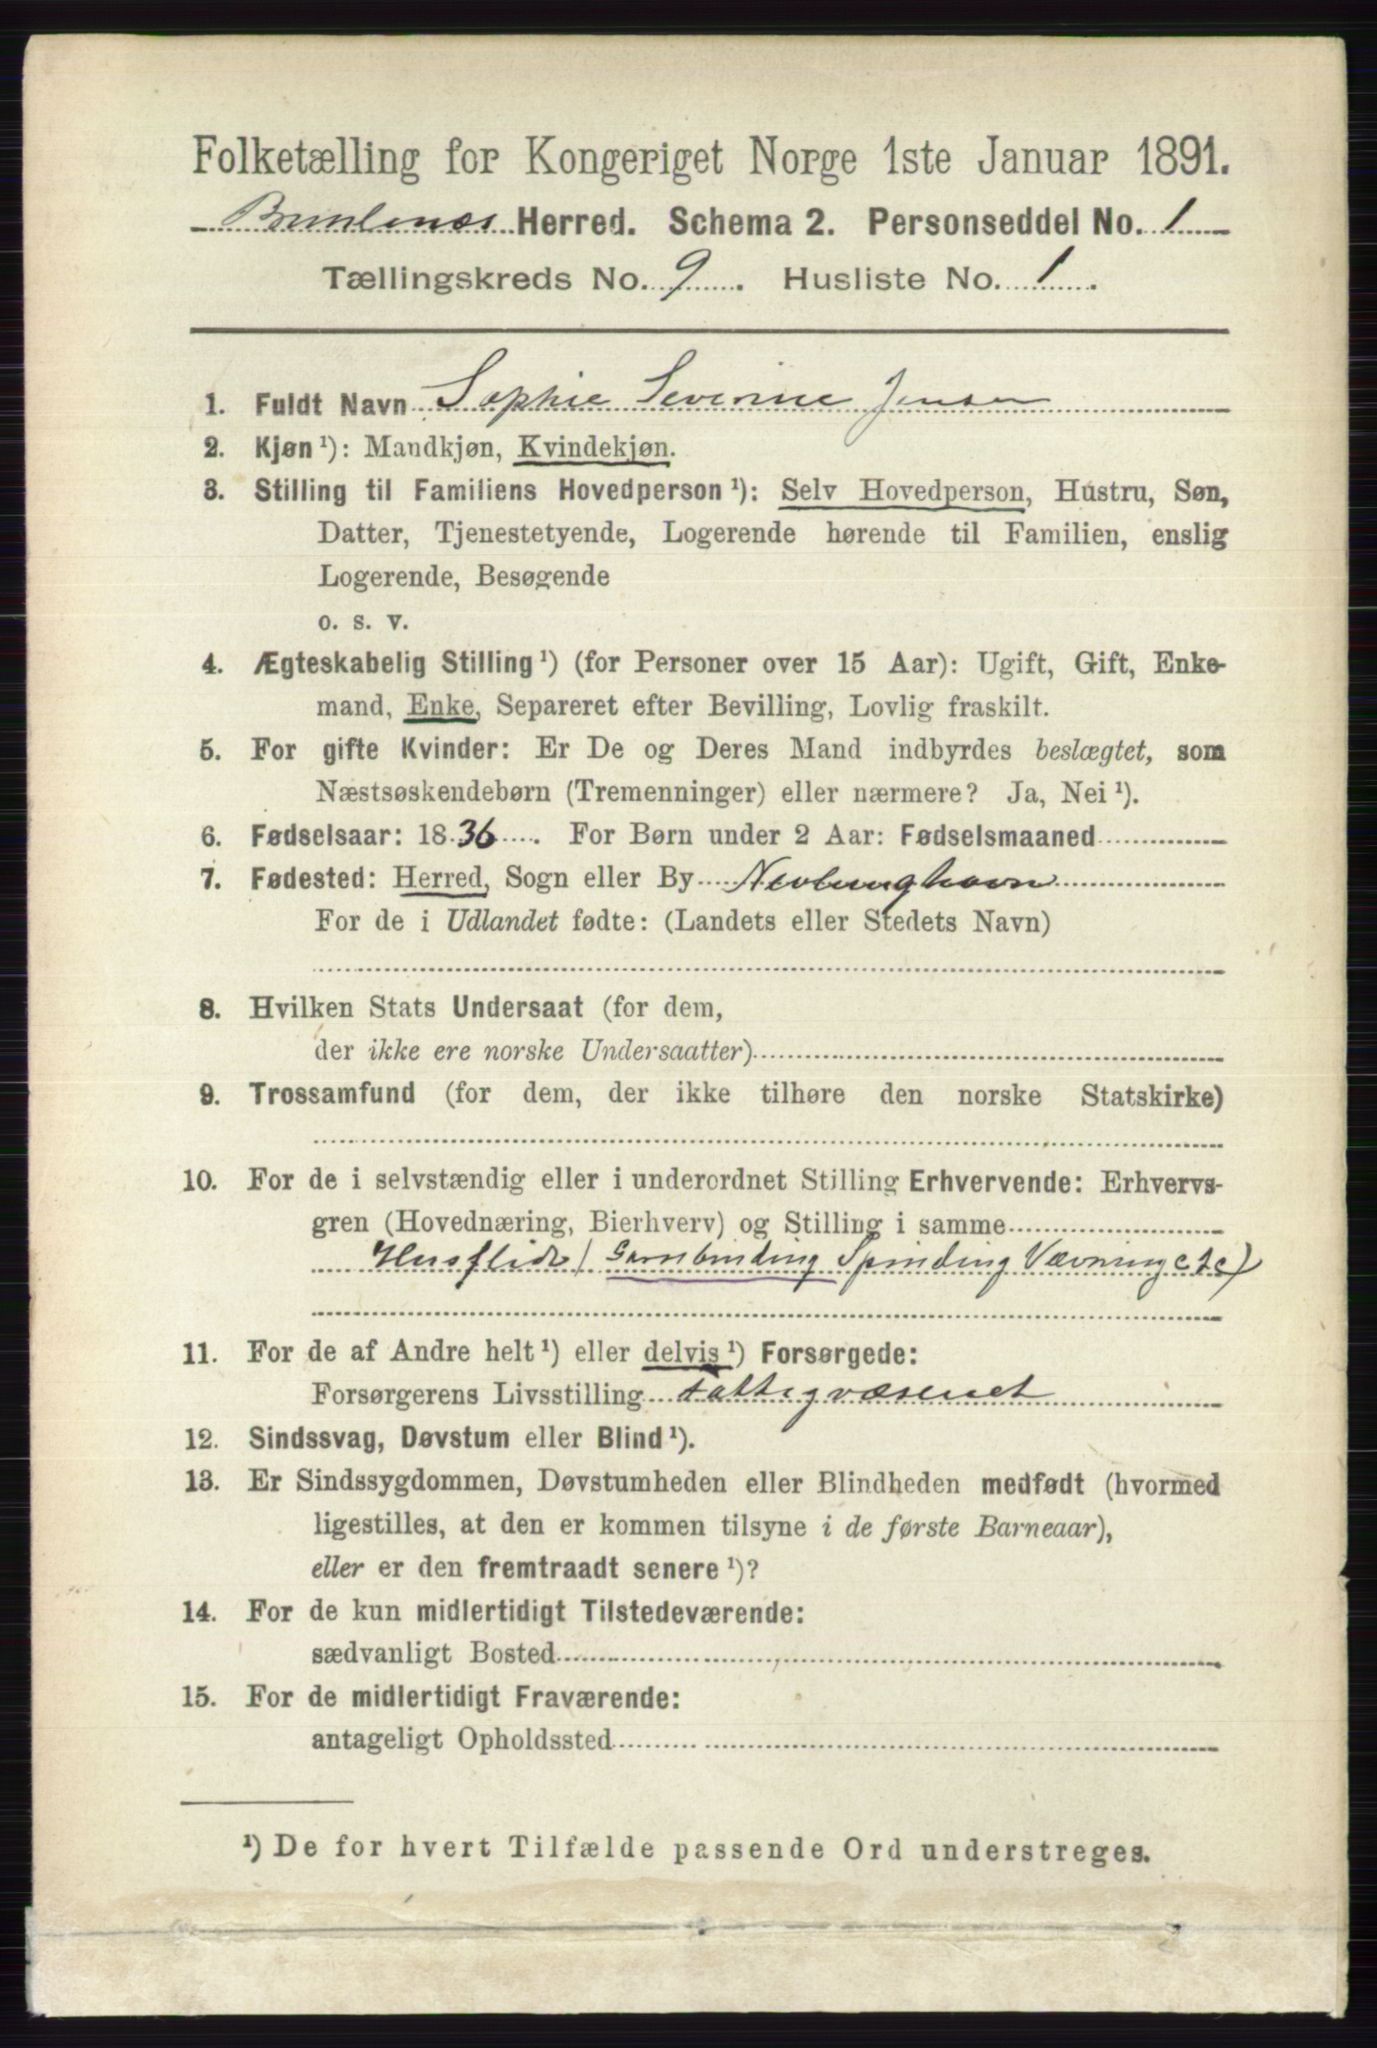 Folketælling for Kongeriget Norge 1ste Januar 1891.
Brunlanæs Herred. Schema 2. Personseddel No. 1
Tællingskreds No. 9. Husliste No. 1.
1. Fuldt Navn Sophie Severine Jensen
2. Kjøn¹): Mandkjøn, Kvindekjøn.
3. Stilling til Familiens Hovedperson¹): Selv Hovedperson, Hustru, Søn,
Datter, Tjenestetyende, Logerende hørende til Familien, enslig
Logerende, Besøgende
o. s. v.
4. Ægteskabelig Stilling¹) (for Personer over 15 Aar): Ugift, Gift, Enke-
mand, Enke, Separeret efter Bevilling, Lovlig fraskilt.
5. For gifte Kvinder: Er De og Deres Mand indbyrdes beslægtet, som
Næstsøskendebørn (Tremenninger) eller nærmere? Ja, Nei¹).
6. Fødselsaar: 1836. For Børn under 2 Aar: Fødselsmaaned
7. Fødested: Herred, Sogn eller By Nevlunghavn
For de i Udlandet fødte: (Landets eller Stedets Navn)
8. Hvilken Stats Undersaat (for dem,
der ikke ere norske Undersaatter)
9. Trossamfund (for dem, der ikke tilhøre den norske Statskirke)
10. For de i selvstændig eller i underordnet Stilling Erhvervende: Erhvervs-
gren (Hovednæring, Bierhverv) og Stilling i samme
Husflid (Garnbinding Spinding Vævning etc)
11. For de af Andre helt¹) eller delvis¹) Forsørgede:
Forsørgerens Livsstilling Fattigvæsenet
12. Sindssvag, Døvstum eller Blind¹).
13. Er Sindssygdommen, Døvstumheden eller Blindheden medfødt (hvormed
ligestilles, at den er kommen tilsyne i de første Barneaar),
eller er den fremtraadt senere¹)?
14. For de kun midlertidigt Tilstedeværende:
sædvanligt Bosted
15. For de midlertidigt Fraværende:
antageligt Opholdssted
¹) De for hvert Tilfælde passende Ord understreges.